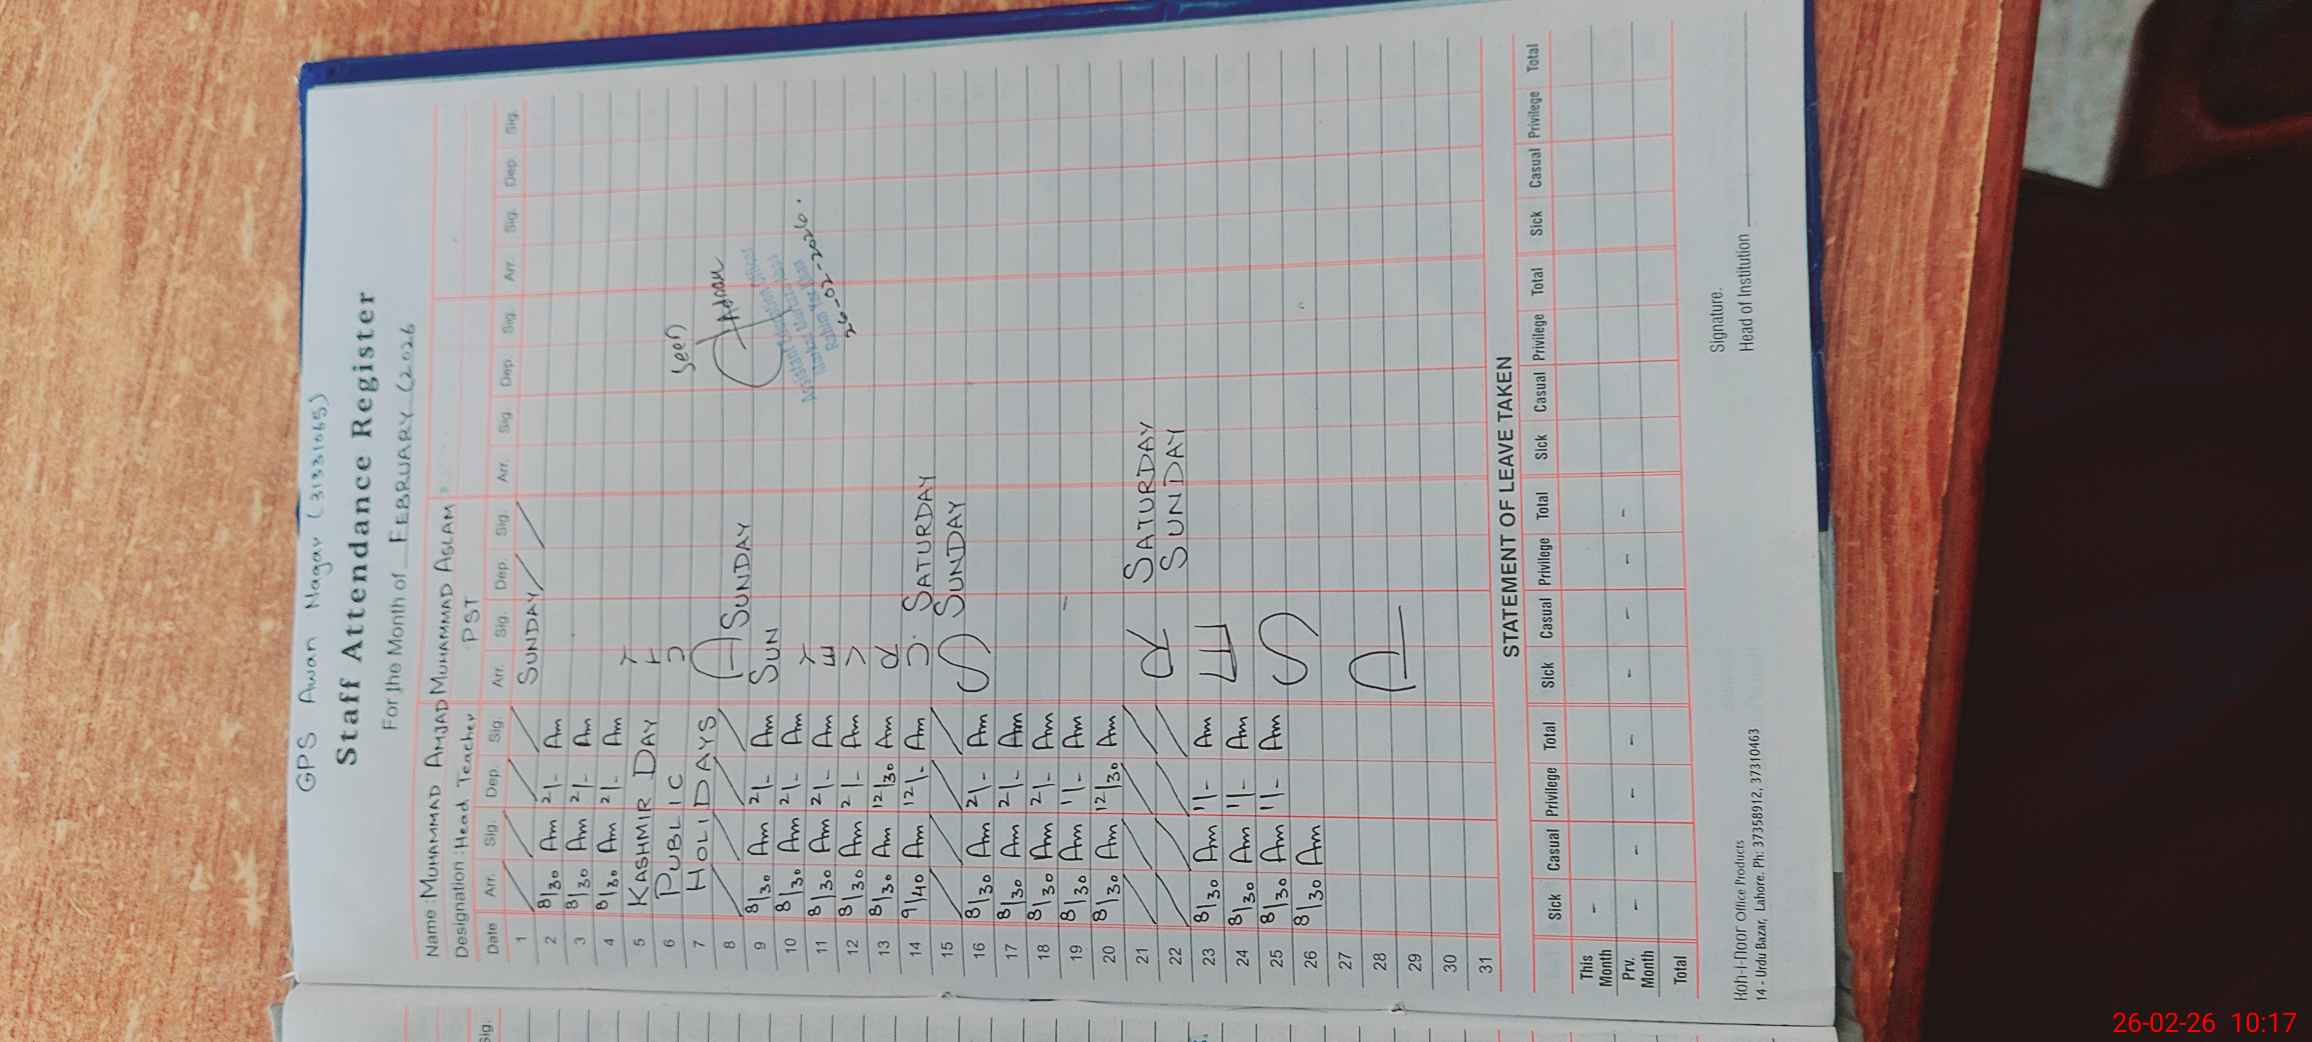 GPS Awan Nagar (31331065)
Staff Attendance Register
For the Month of FEBRUARY (2026
Name : MUHAMMAD AMJAD MUHAMMAD ASLAM
Designation : Head Teacher PST
Date Arr. Sig. Dep. Sig. Arr. Sig. Dep. Sig. Arr. Sig. Dep. Sig. Arr. Sig. Dep. Sig.
1 SUNDAY
2 8/30 Am 2/- Am
3 8/30 Am 2/- Am
4 8/30 Am 2/- Am
5 KASHMIR DAY
6 PUBLIC
7 HOLIDAYS
8 SUNDAY
9 8/30 Am 2/- Am SUN
10 8/30 Am 2/- Am
11 8/30 Am 2/- Am
12 8/30 Am 2/- Am
13 8/30 Am 12/30 Am
14 9/40 Am 12/- Am SATURDAY
15 SUNDAY
16 8/30 Am 2/- Am
17 8/30 Am 2/- Am
18 8/30 Am 2/- Am
19 8/30 Am 1/- Am
20 8/30 Am 12/30 Am
21 SATURDAY
22 SUNDAY
23 8/30 Am 1/- Am
24 8/30 Am 1/- Am
25 8/30 Am 1/- Am
26 8/30 Am
27
28
29
30
31
Seen
Adnan
Assistant Education Officer
26-02-2026.
STATEMENT OF LEAVE TAKEN
Sick Casual Privilege Total Sick Casual Privilege Total Sick Casual Privilege Total Sick Casual Privilege Total
This Month -
Prv. Month - - - - - - - -
Total
Signature.
Head of Institution
Koh-I-Noor Office Products
14 - Urdu Bazar, Lahore. Ph: 37358912, 37310463
Sig.
26-02-26 10:17